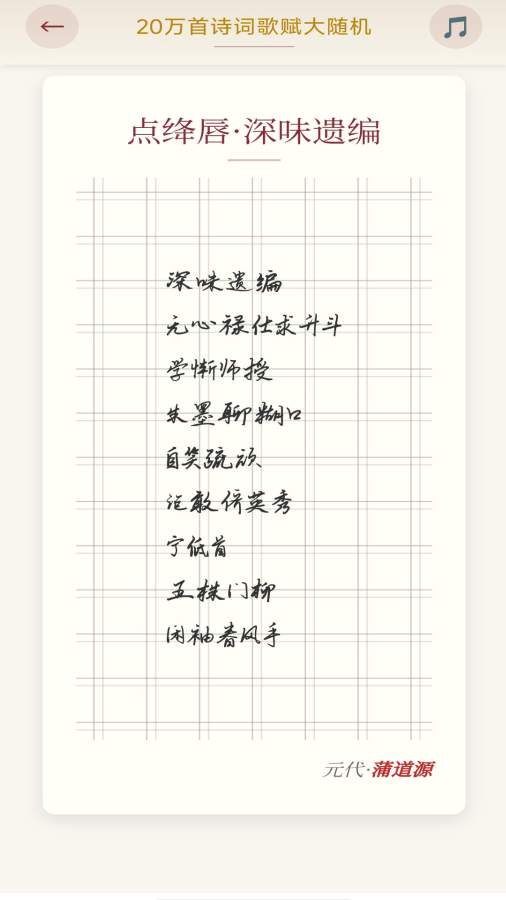 20万首诗词歌赋大随机
点绛唇·深味遗编
深味遗编
无心禄仕求升斗
学惭师授
朱墨聊糊口
自笑疏顽
讵敢侪英秀
宁低首
五株门柳
闲袖春风手
元代·蒲道源